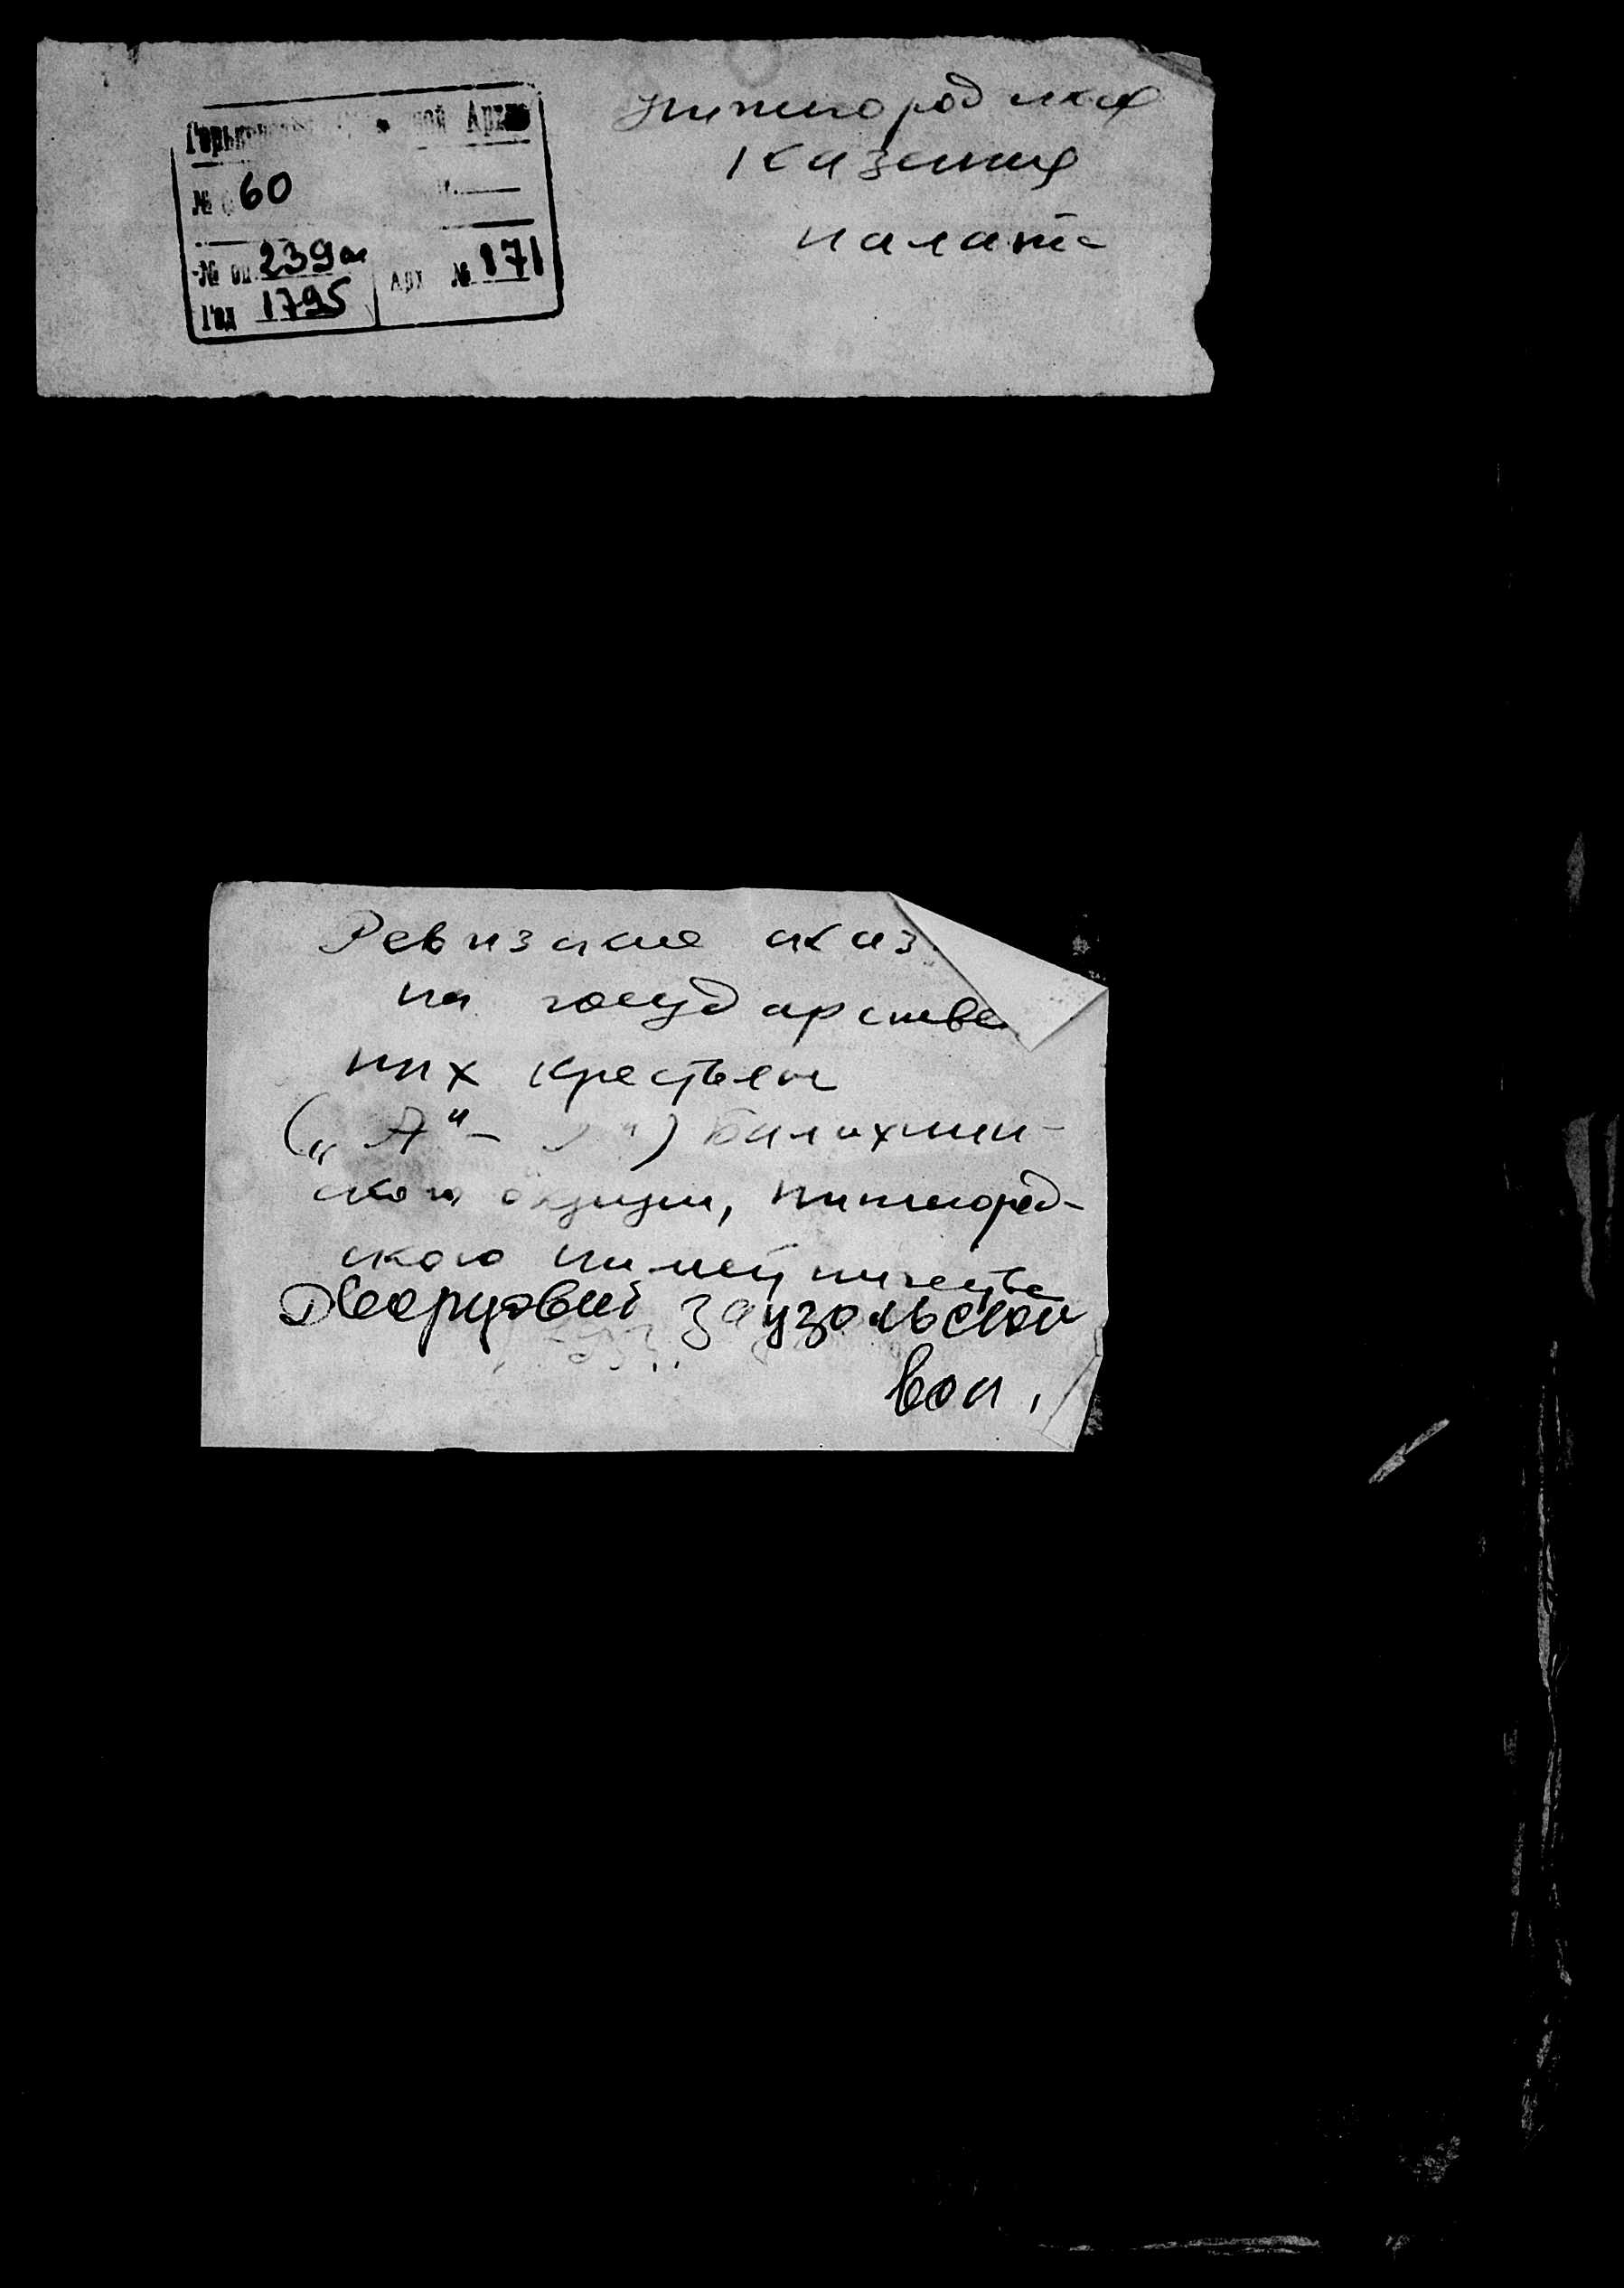 Нижегородская
казенная
палата
Архив
№ 60
№ оп. 239а Арх № 171
Год 1795
Ревизские сказ
на государствен
ных крестьян
(„А"– ") Балахнин-
ского округи, Нижегород-
ского наместничества
Дворцовой Заузольской
вол.